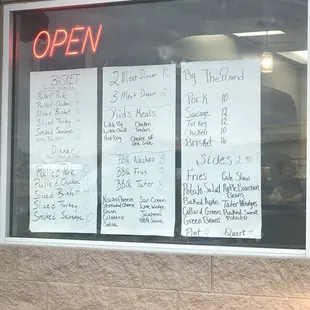 OPEN
BASKET
Pulled Pork
Pulled Chicken
Sliced Brisket
Sliced Turkey
Smoked Sausage
Dinner
Pulled Pork
Pulled Chicken
Sliced Brisket
Sliced Turkey
Smoked Sausage
2 Meat Dinner
3 Meat Dinner
Kids Meals
Chicken
Tenders
Hot Dog
Choice of
One Side
BBQ Nachos 8
BBQ Fries 9
BBQ Tater 8
Nacho Cheese
Shredded Cheese
Onion
Cilantro
Salsa
Sour Cream
Lime Wedge
Jalapeno
BBQ Sauce
By The Pound
Pork 10
Sausage 12
Turkey 12
Chicken 10
Brisket 16
Sides 2.50
Fries
Cole Slaw
Potato Salad
Apple Bourbon
Beans
Baked Apples
Tater Wedges
Collard Greens
Baked Sweet
Potato
Green Beans
Pint
Quart